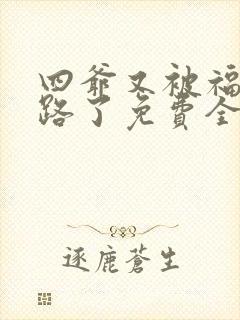 四爷又被福
路了免費全
逐鹿蒼生